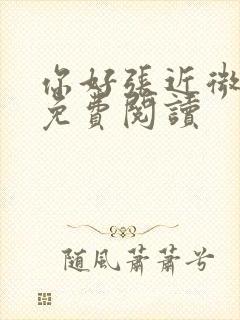 你好張近微
免費閱讀
隨風蕭蕭兮